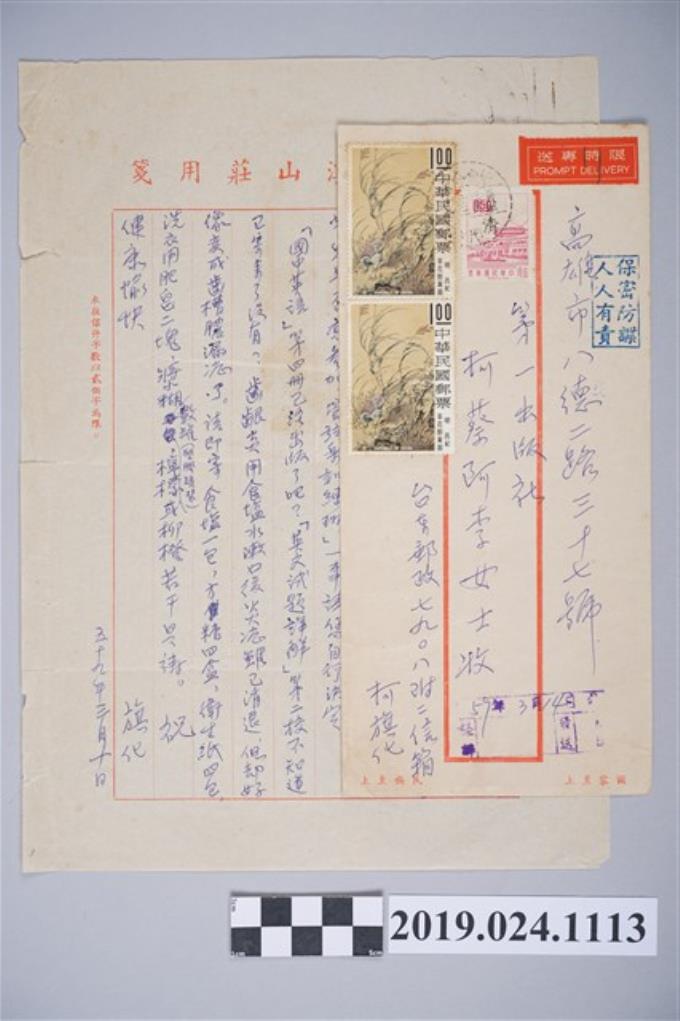 用箋
山莊
「國中英語」第四冊已經出版了吧？「英文試題詳解」第二校不知道
已寄来了沒有？齒齦炎用食塩水漱口後炎症雖已消退，但却好
像变成齒槽膿漏症了。請即寄食塩一包，方糖四盒，衛生紙四包，
洗衣用肥皂二塊，漿糊，檸檬或柳橙若干只請。祝
健康愉快
旗化
五十九年三月十日
本批信件字數以貳佰字為限。
限時專送
PROMPT DELIVERY
保密防諜
人人有責
高雄市八德二路三十七號
第一出版社
柯蔡阿李女士收
台東郵政七九〇八附二信箱
柯旗化
1.00
中華民國郵票
1.00
中華民國郵票
3月14日
發送
國家至上
民族至上
2019.024.1113